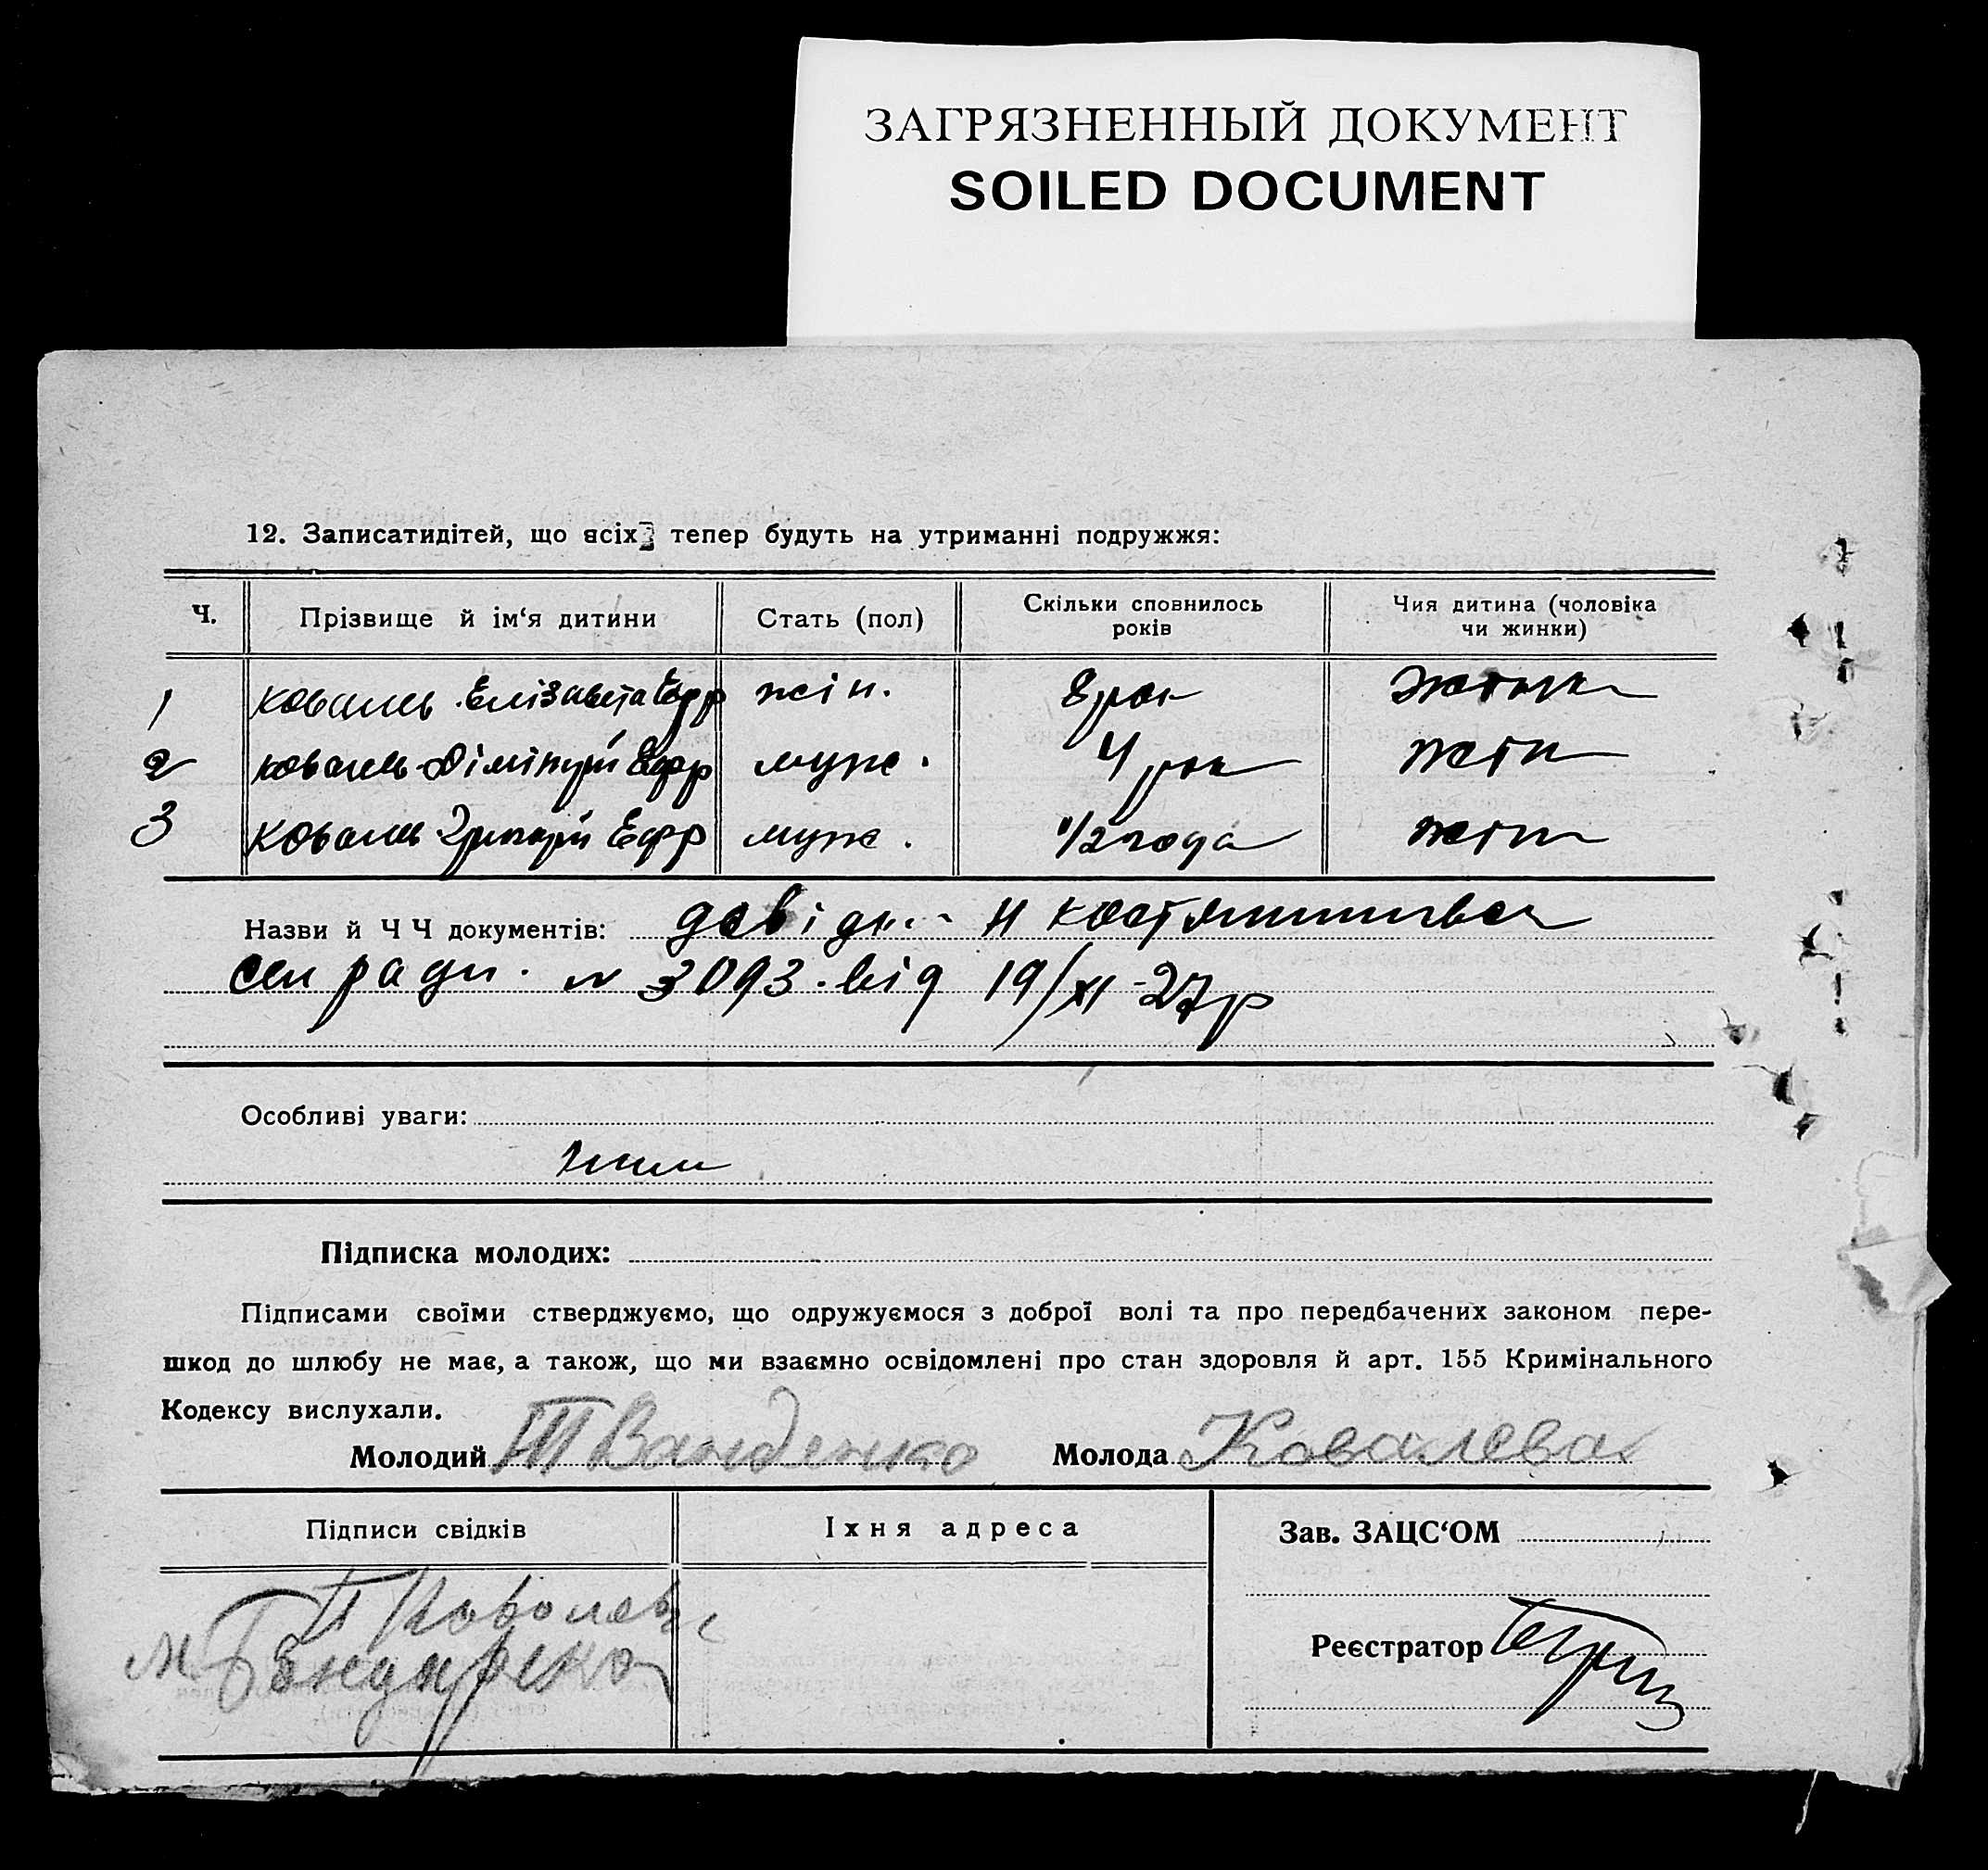 ЗАГРЯЗНЕННЫЙ ДОКУМЕНТ
SOILED DOCUMENT
12. Записатидітей, що всіх тепер будуть на утриманні подружжя:
Ч. Прізвище й ім‘я дитини Стать (пол) Скільки сповнилось років Чия дитина (чоловіка чи жинки)
1 Коваль Елізавета Ефр жін. 8 рок
2 Коваль Дімітрій Ефр муж. 4 рок
3 Коваль Григорій Ефр муж. 1/2 года
Назви й Ч Ч документів: довідк. Н
сел ради. N 3093. від 19/XI-27р
Особливі уваги:
Підписка молодих:
Підписами своїми стверджуємо, що одружуємося з доброї волі та про передбачених законом пере-
шкод до шлюбу не має, а також, що ми взаємно освідомлені про стан здоровля й арт. 155 Кримінального
Кодексу вислухали.
Молодий Молода Ковалева
Підписи свідків Їхня адреса Зав. ЗАЦС‘ОМ
М. Бондаренко
Реєстратор